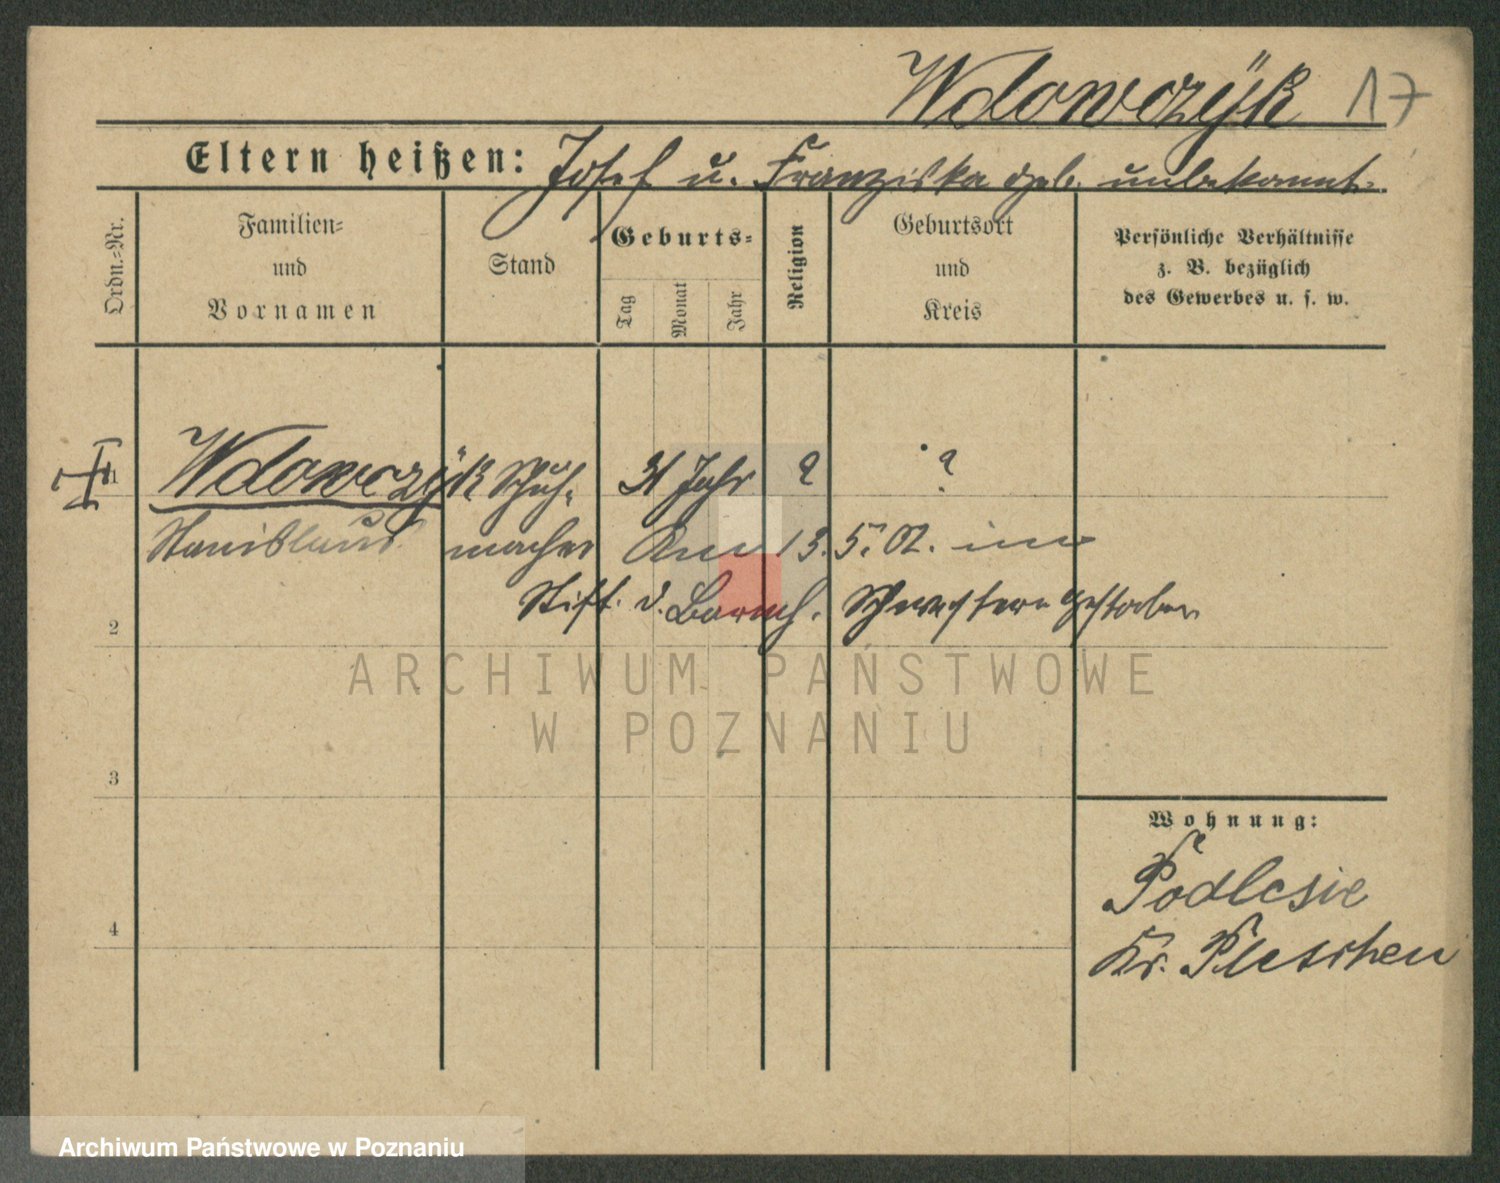 Wdowczÿk 17
Eltern heißen: Josef u. Franziska geb. unbekannt.
Ordn.-Nr.
Familien-
und
Vornamen
Stand
Geburts-
Tag
Monat
Jahr
Religion
Geburtsort
und
Kreis
Persönliche Verhältnisse
z. B. bezüglich
des Gewerbes u. s. w.
1 Wdowczÿk Schuh- 31 Jahr ? ?
Stanislaus macher Am 13. 5. 02. im
Stift d. Barmh. Schwestern gestorben
2
ARCHIWUM PAŃSTWOWE
W POZNANIU
3
Wohnung:
Podlesie
4
Kr. Pleschen
Archiwum Państwowe w Poznaniu